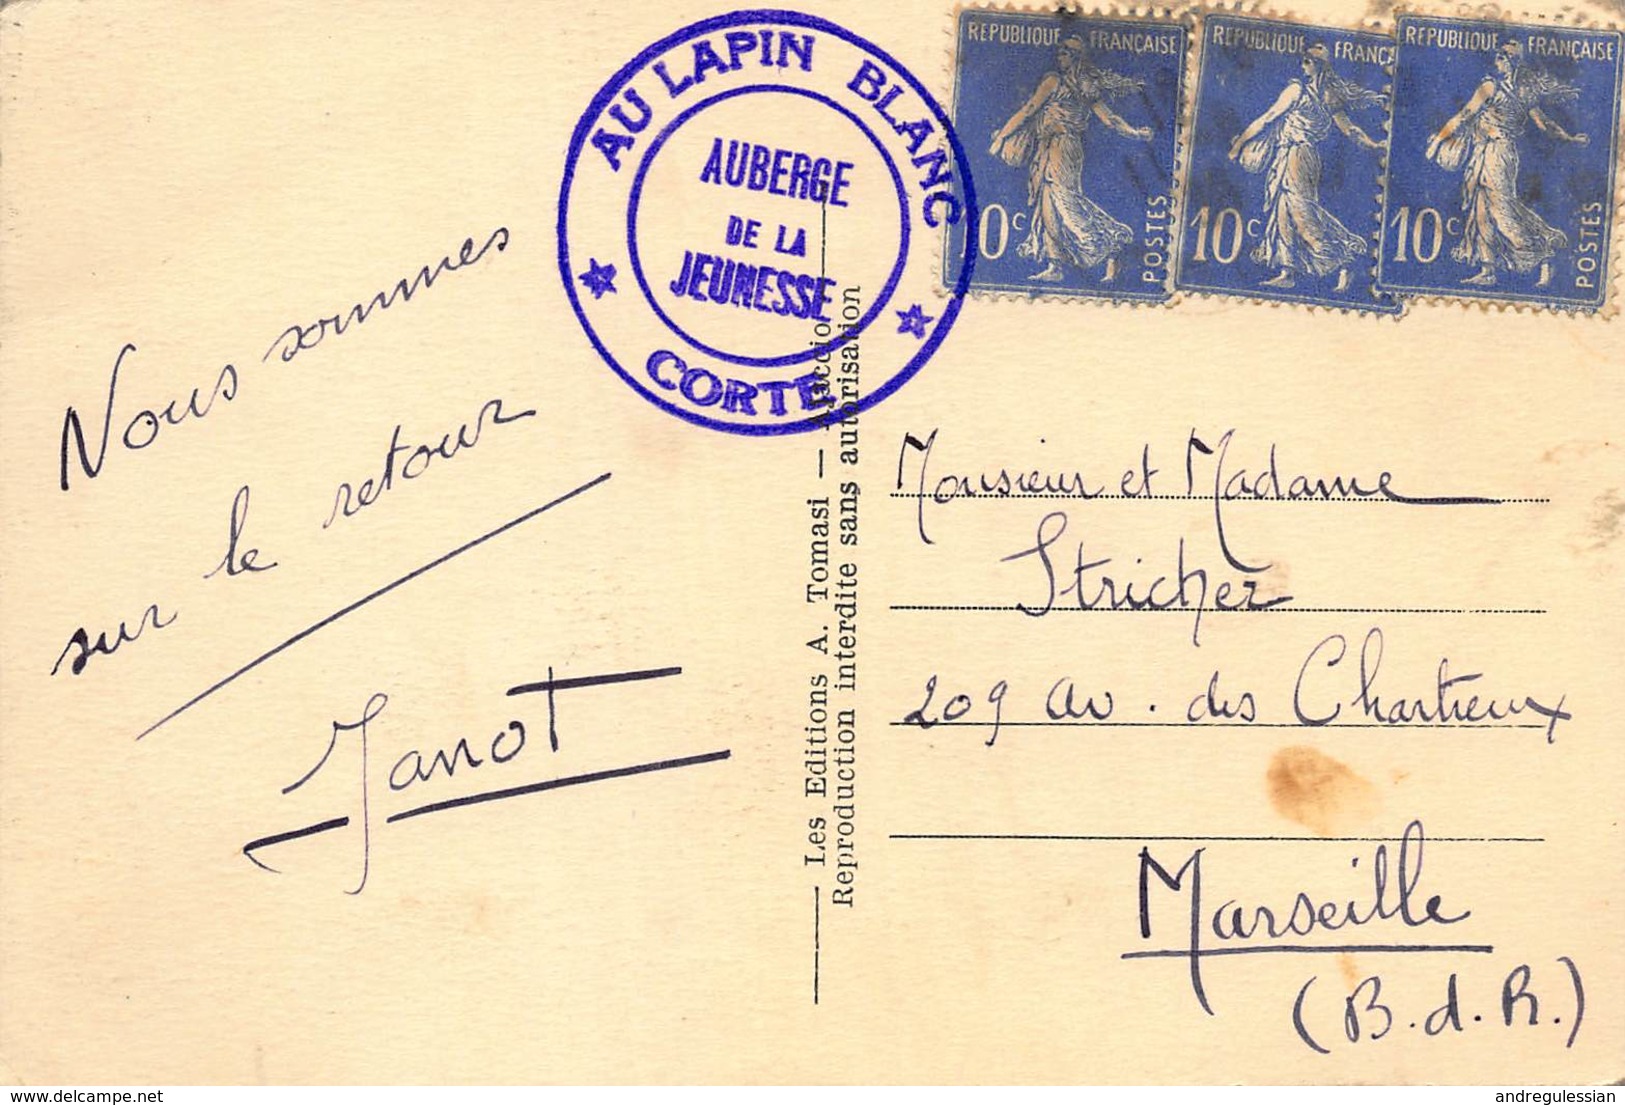 AU LAPIN BLANC
AUBERGE
DE LA
JEUNESSE
CORTE
REPUBLIQUE FRANÇAISE
10c
POSTES
REPUBLIQUE FRANÇAISE
10c
REPUBLIQUE FRANÇAISE
10c
POSTES
Nous sommes
sur le retour
Janot
Les Editions A. Tomasi — Ajaccio
Reproduction interdite sans autorisation
Monsieur et Madame
Stricher
209 av. des Chartreux
Marseille
(B.d.R.)
delcampe.net
andregulessian